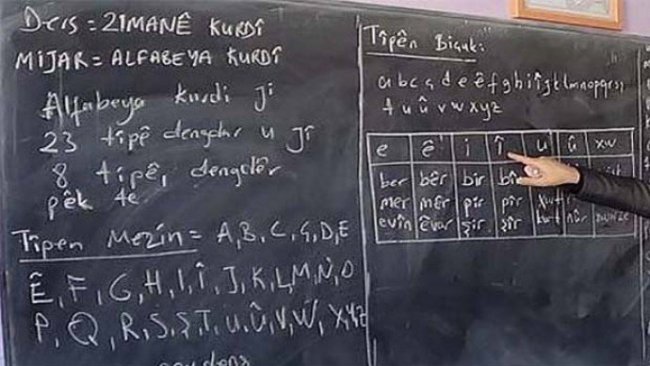 Ders = ZIMANÊ KURDÎ
MIJAR = ALFABEYA KURDÎ
Alfabeya kurdi ji
23 tipê dengdar u jî
8 tipê, dengdêr
pêk te
Tîpên Mezin = A, B, C, Ç, D, E
Ê, F, G, H, I, Î, J, K, L, M, N, O
P, Q, R, S, Ş, T, U, Û, V, W, X, Y, Z
Tîpên Biçuk:
a b c ç d e ê f g h i î j k l m n o p q r s ş
t u û v w x y z
e ê i î u û xw
ber bêr bir bîr
mer mêr pir pîr
evîn êvar şir şîr nûr